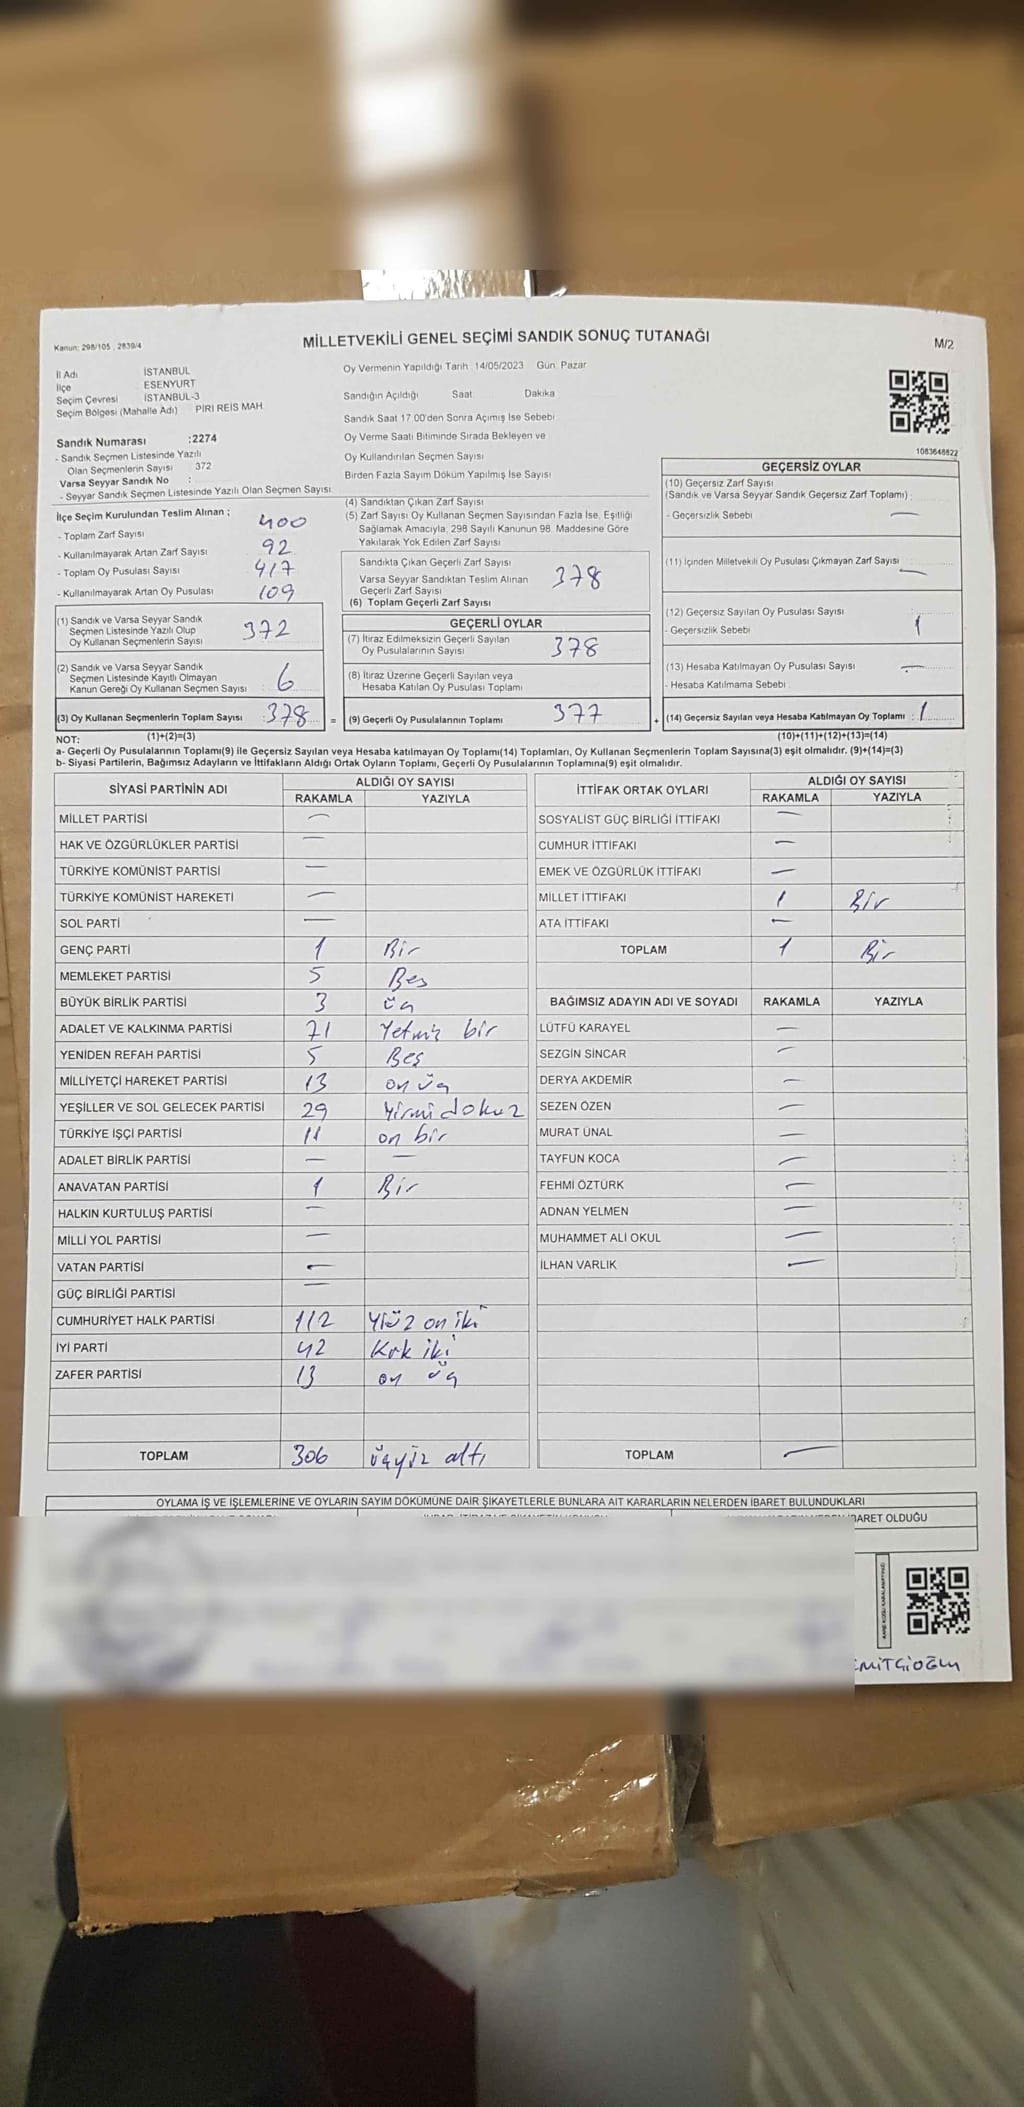 Kanun: 298/105 , 2839/4
MİLLETVEKİLİ GENEL SEÇİMİ SANDIK SONUÇ TUTANAĞI
M/2
İl Adı İSTANBUL
İlçe ESENYURT
Seçim Çevresi İSTANBUL-3
Seçim Bölgesi (Mahalle Adı) PİRİ REİS MAH.
Sandık Numarası :2274
- Sandık Seçmen Listesinde Yazılı
Olan Seçmenlerin Sayısı 372
Varsa Seyyar Sandık No :
- Seyyar Sandık Seçmen Listesinde Yazılı Olan Seçmen Sayısı:
Oy Vermenin Yapıldığı Tarih : 14/05/2023 Gün: Pazar
Sandığın Açıldığı Saat Dakika
Sandık Saat 17:00'den Sonra Açımış İse Sebebi
Oy Verme Saati Bitiminde Sırada Bekleyen ve
Oy Kullandırılan Seçmen Sayısı
Birden Fazla Sayım Döküm Yapılmış İse Sayısı
1083648822
İlçe Seçim Kurulundan Teslim Alınan ;
- Toplam Zarf Sayısı 400
- Kullanılmayarak Artan Zarf Sayısı 92
- Toplam Oy Pusulası Sayısı 417
- Kullanılmayarak Artan Oy Pusulası 109
(1) Sandık ve Varsa Seyyar Sandık
Seçmen Listesinde Yazılı Olup
Oy Kullanan Seçmenlerin Sayısı 372
(2) Sandık ve Varsa Seyyar Sandık
Seçmen Listesinde Kayıtlı Olmayan
Kanun Gereği Oy Kullanan Seçmen Sayısı 6
(3) Oy Kullanan Seçmenlerin Toplam Sayısı : 378 =
(4) Sandıktan Çıkan Zarf Sayısı
(5) Zarf Sayısı Oy Kullanan Seçmen Sayısından Fazla İse, Eşitliği
Sağlamak Amacıyla, 298 Sayılı Kanunun 98. Maddesine Göre
Yakılarak Yok Edilen Zarf Sayısı
Sandıkta Çıkan Geçerli Zarf Sayısı
Varsa Seyyar Sandıktan Teslim Alınan
Geçerli Zarf Sayısı
(6) Toplam Geçerli Zarf Sayısı 378
GEÇERLİ OYLAR
(7) İtiraz Edilmeksizin Geçerli Sayılan
Oy Pusulalarının Sayısı 378
(8) İtiraz Üzerine Geçerli Sayılan veya
Hesaba Katılan Oy Pusulası Toplamı
(9) Geçerli Oy Pusulalarının Toplamı 377 +
GEÇERSİZ OYLAR
(10) Geçersiz Zarf Sayısı
(Sandık ve Varsa Seyyar Sandık Geçersiz Zarf Toplamı) :
- Geçersizlik Sebebi —
(11) İçinden Milletvekili Oy Pusulası Çıkmayan Zarf Sayısı —
(12) Geçersiz Sayılan Oy Pusulası Sayısı
- Geçersizlik Sebebi 1
(13) Hesaba Katılmayan Oy Pusulası Sayısı —
- Hesaba Katılmama Sebebi
(14) Geçersiz Sayılan veya Hesaba Katılmayan Oy Toplamı : 1
NOT: (1)+(2)=(3) (10)+(11)+(12)+(13)=(14)
a- Geçerli Oy Pusulalarının Toplamı(9) ile Geçersiz Sayılan veya Hesaba katılmayan Oy Toplamı(14) Toplamları, Oy Kullanan Seçmenlerin Toplam Sayısına(3) eşit olmalıdır. (9)+(14)=(3)
b- Siyasi Partilerin, Bağımsız Adayların ve İttifakların Aldığı Ortak Oyların Toplamı, Geçerli Oy Pusulalarının Toplamına(9) eşit olmalıdır.
SİYASİ PARTİNİN ADI ALDIĞI OY SAYISI
RAKAMLA YAZIYLA
MİLLET PARTİSİ —
HAK VE ÖZGÜRLÜKLER PARTİSİ —
TÜRKİYE KOMÜNİST PARTİSİ —
TÜRKİYE KOMÜNİST HAREKETİ —
SOL PARTİ —
GENÇ PARTİ 1 Bir
MEMLEKET PARTİSİ 5 Beş
BÜYÜK BİRLİK PARTİSİ 3 üç
ADALET VE KALKINMA PARTİSİ 71 Yetmiş bir
YENİDEN REFAH PARTİSİ 5 Beş
MİLLİYETÇİ HAREKET PARTİSİ 13 on üç
YEŞİLLER VE SOL GELECEK PARTİSİ 29 Yirmi dokuz
TÜRKİYE İŞÇİ PARTİSİ 11 on bir
ADALET BİRLİK PARTİSİ — —
ANAVATAN PARTİSİ 1 Bir
HALKIN KURTULUŞ PARTİSİ —
MİLLİ YOL PARTİSİ —
VATAN PARTİSİ —
GÜÇ BİRLİĞİ PARTİSİ —
CUMHURİYET HALK PARTİSİ 112 Yüz on iki
İYİ PARTİ 42 Kırk iki
ZAFER PARTİSİ 13 on üç
TOPLAM 306 üçyüz altı
İTTİFAK ORTAK OYLARI ALDIĞI OY SAYISI
RAKAMLA YAZIYLA
SOSYALİST GÜÇ BİRLİĞİ İTTİFAKI —
CUMHUR İTTİFAKI —
EMEK VE ÖZGÜRLÜK İTTİFAKI —
MİLLET İTTİFAKI 1 Bir
ATA İTTİFAKI —
TOPLAM 1 Bir
BAĞIMSIZ ADAYIN ADI VE SOYADI RAKAMLA YAZIYLA
LÜTFÜ KARAYEL —
SEZGİN SİNCAR —
DERYA AKDEMİR —
SEZEN ÖZEN —
MURAT ÜNAL —
TAYFUN KOCA —
FEHMİ ÖZTÜRK —
ADNAN YELMEN —
MUHAMMET ALİ OKUL —
İLHAN VARLIK —
TOPLAM —
OYLAMA İŞ VE İŞLEMLERİNE VE OYLARIN SAYIM DÖKÜMÜNE DAİR ŞİKAYETLERLE BUNLARA AİT KARARLARIN NELERDEN İBARET BULUNDUKLARI
BARET OLDUĞU